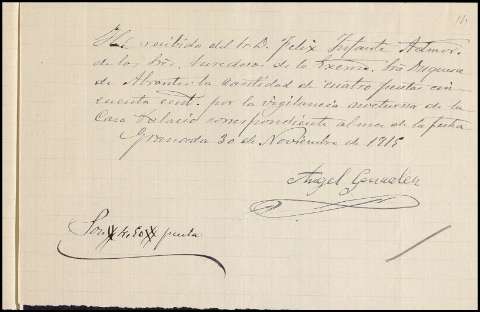 He recibido del Sr. D. Felix Infante Admor.
de los Sres. herederos de la Excma. Sra Duquesa
de Abrantes la cantidad de cuatro pesetas cin-
cuenta cent. por la vigilancia nocturna de la
Casa Palacio correspondiente al mes de la fecha
Granada 30 de Noviembre de 1915
Angel
Son 4,50 peseta